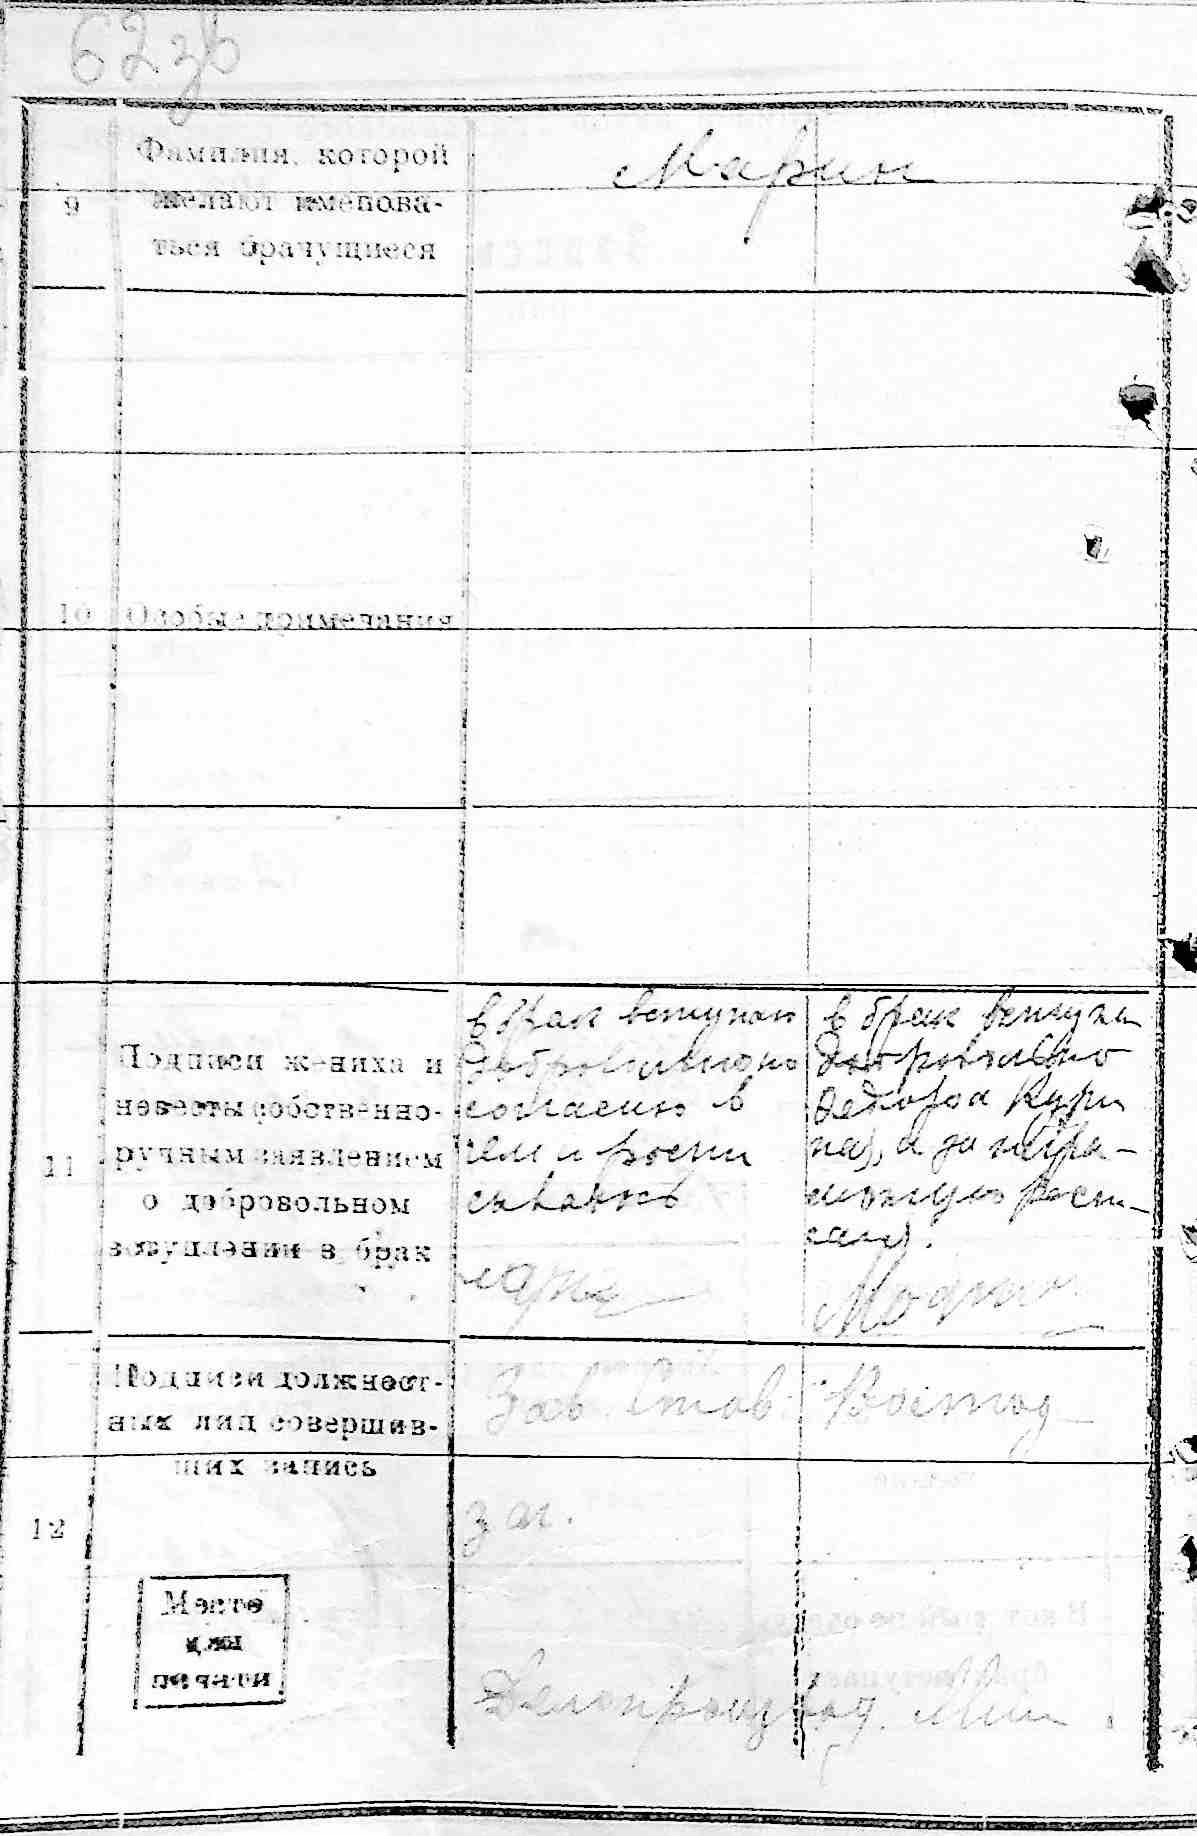 62 зв
Фамилия, которой
9 желают именова-
ться брачущиеся
Марин
10 Особые примечания
11
Подписи жениха и
невесты собственно-
ручным заявлением
о добровольном
вступлении в брак
в брак вступаю
добровольно
согласно в
чем и роспи
сываюсь
в брак вступаю
добровольно
а за негра-
мотную роспи-
сался.
12
Подписи должност-
ных лиц совершив-
ших запись
Зав. Стов.
заг.
Место
для
печати
Делопроизвод.